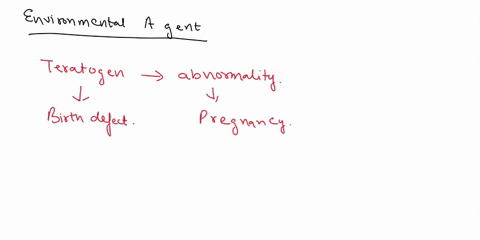 Environmental Agent
Teratogen → abnormality.
↓ ↓
Birth defect. Pregnancy.